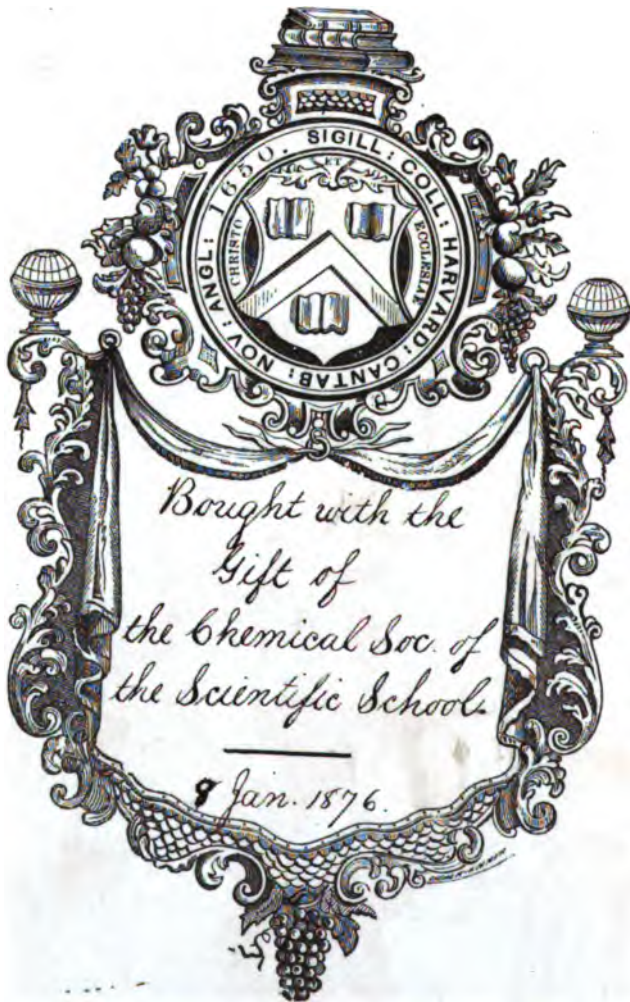 SIGILL: COLL: HARVARD: CANTAB: NOV: ANGL: 1650.
ET
CHRISTO
ECCLESIAE
Bought with the
Gift of
the Chemical Soc. of
the Scientific School.
8 Jan. 1876.